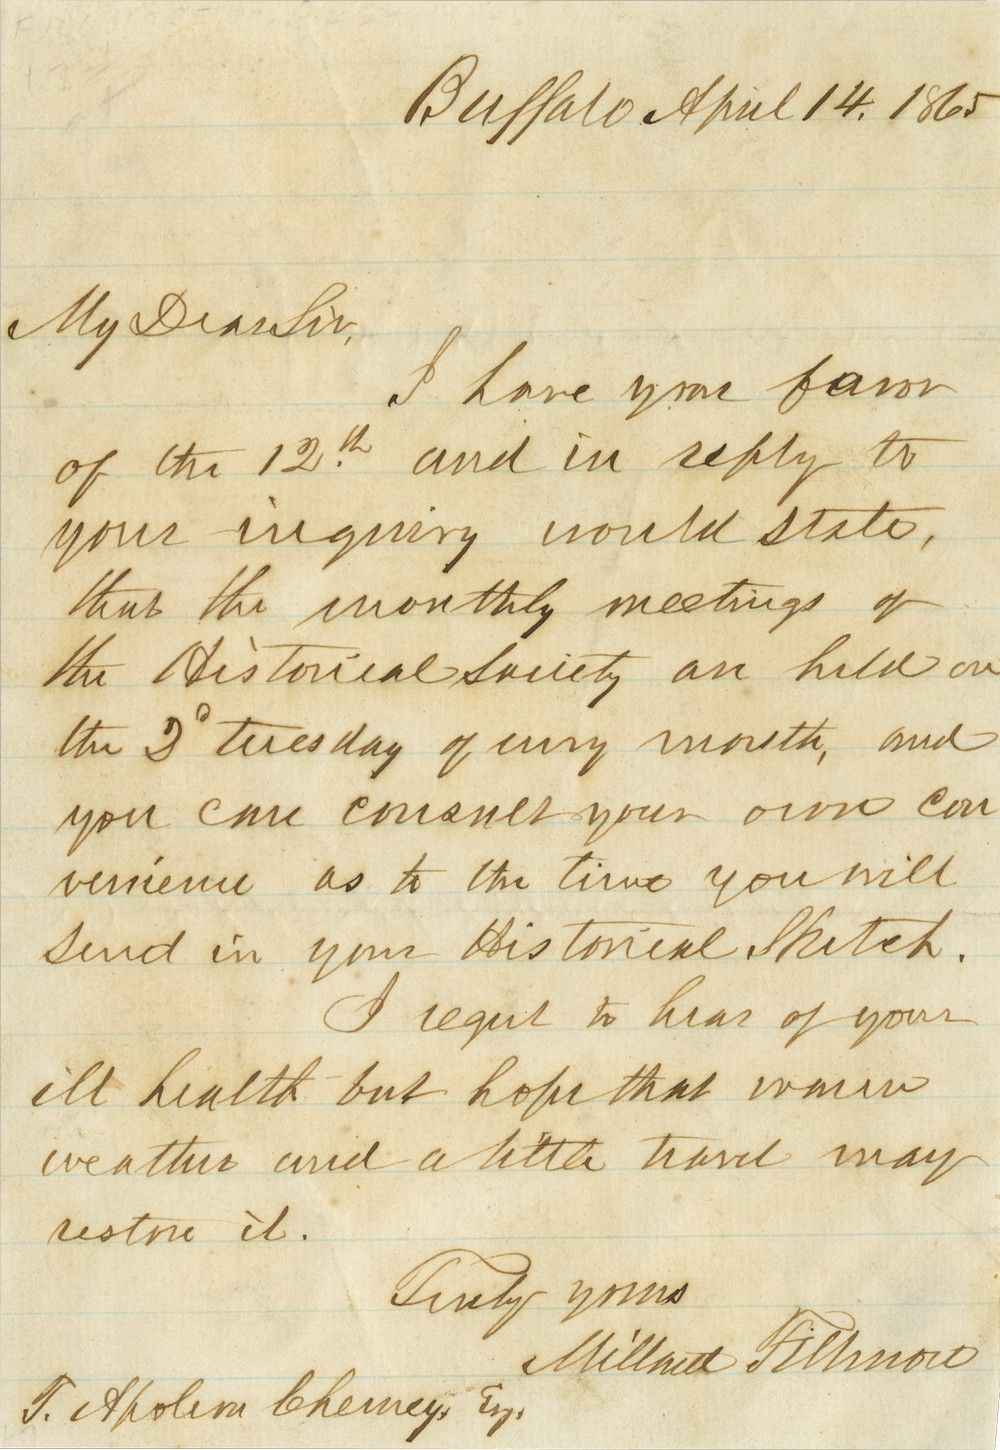 Buffalo April 14. 1865
My Dear Sir,
I have your favor
of the 12.th and in reply to
your inquiry would state,
that the monthly meetings of
the Historical Society are held on
the 2d tuesday of every month, and
you can consult your own con
venience as to the time you will
send in your Historical Sketch.
I regret to hear of your
ill health but hope that warm
weather and a little travel may
restore it.
Truly yours
Millard Fillmore
T. Apoleon Cheney, Esq.